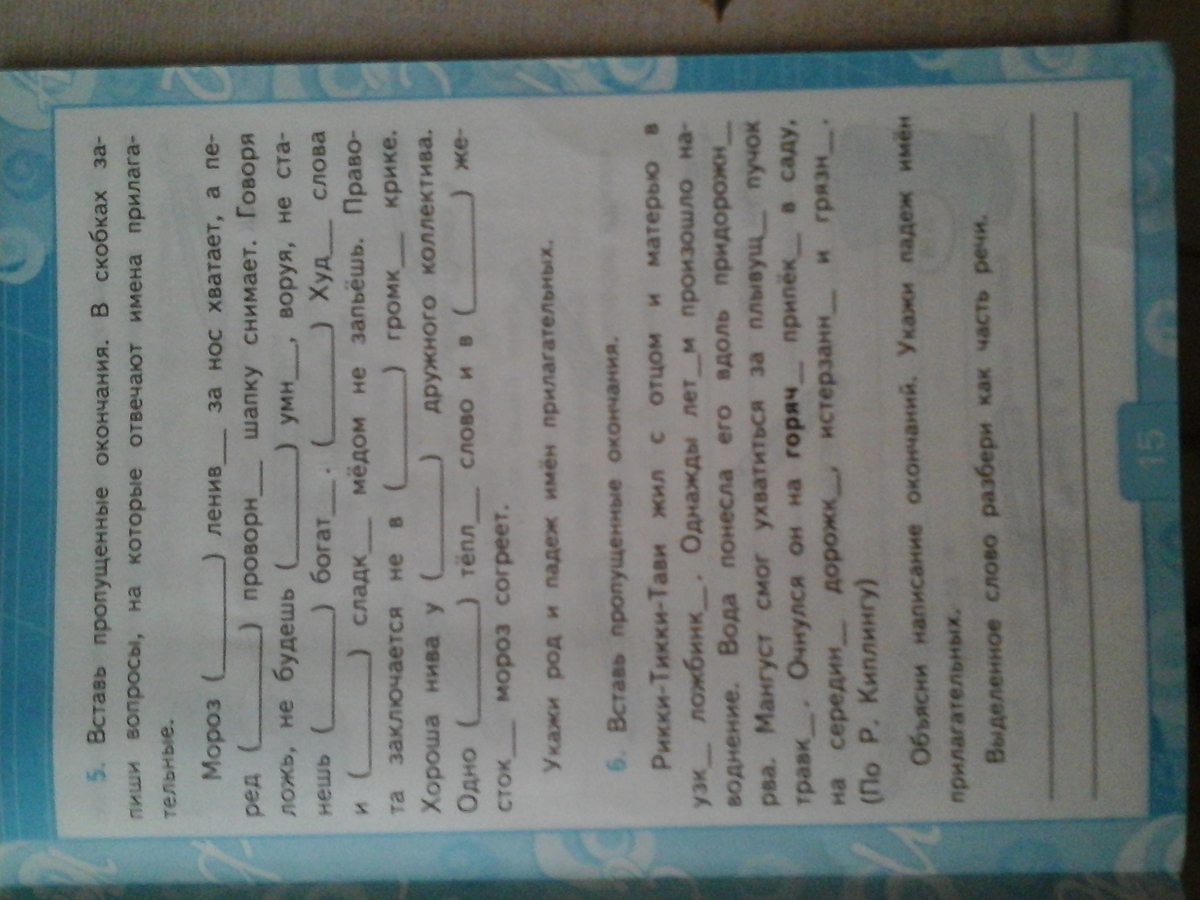 5. Вставь пропущенные окончания. В скобках за-
пиши вопросы, на которые отвечают имена прилага-
тельные.
Мороз (________) ленив___ за нос хватает, а пе-
ред (________) проворн___ шапку снимает. Говоря
ложь, не будешь (________) умн___, воруя, не ста-
нешь (________) богат___. (________) Худ___ слова
и (________) сладк___ мёдом не запьёшь. Право-
та заключается не в (________) громк___ крике.
Хороша нива у (________) дружного коллектива.
Одно (________) тёпл___ слово и в (________) же-
сток___ мороз согреет.
Укажи род и падеж имён прилагательных.
6. Вставь пропущенные окончания.
Рикки-Тикки-Тави жил с отцом и матерью в
узк__ ложбинк__. Однажды лет__м произошло на-
воднение. Вода понесла его вдоль придорожн__
рва. Мангуст смог ухватиться за плывущ__ пучок
травк__. Очнулся он на горяч__ припёк__ в саду,
на середин__ дорожк__, истерзанн__ и грязн__.
(По Р. Киплингу)
Объясни написание окончаний. Укажи падеж имён
прилагательных.
Выделенное слово разбери как часть речи.
15